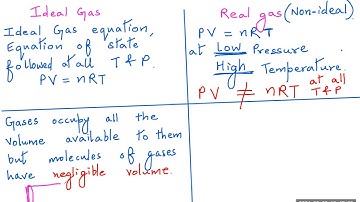 Ideal Gas
Ideal Gas equation,
Equation of state
followed at all T & P.
PV = nRT
Real gas (Non-ideal)
PV = nRT
at Low Pressure
High Temperature.
PV ≠ nRT at all T & P
Gases occupy all the
volume available to them
but molecules of gases
have negligible volume.